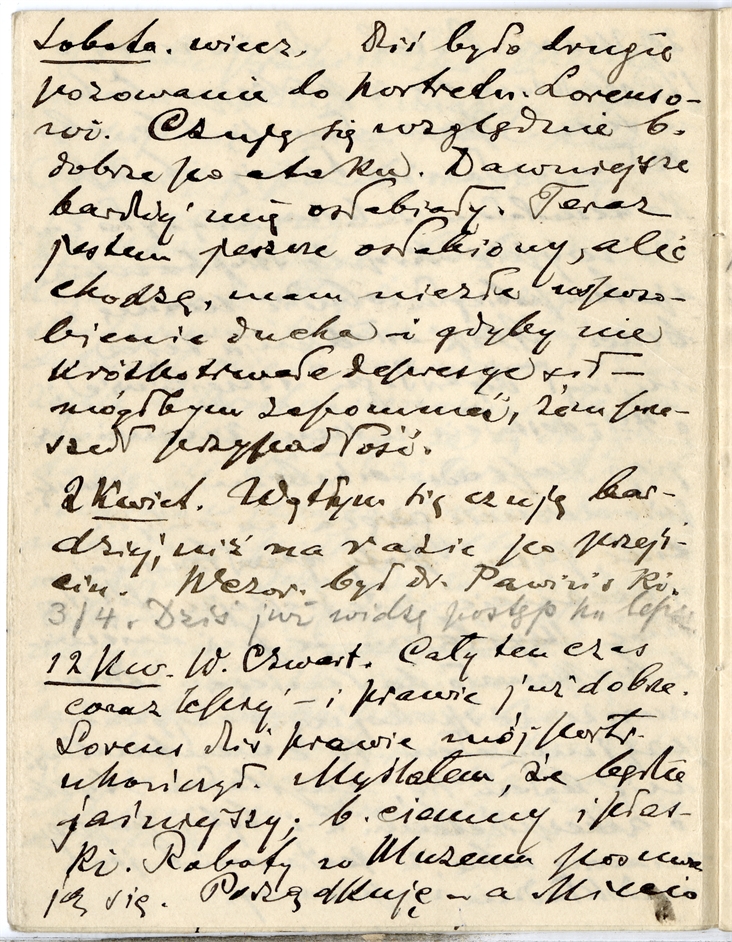 Sobota. wiecz. Dziś było drugie
pozowanie do portretu. Lorenso-
wi. Czuję się względnie b.
dobrze po ataku. Dawniejsze
bardziej mię osłabiały. Teraz
jestem jeszcze osłabiony, ale
chodzę, mam niezłe usposo-
bienie ducha – i gdyby nie
krótkotrwałe depresye sił –
mógłbym zapomnieć, żem prze-
szedł przypadłość.
2 Kwiet. Wątłym się czuję bar-
dziej, niż na razie po przejś-
ciu. Wczor. był dr. Pawiński.
3/4. Dziś już widzę postęp ku lepsz.
12 Kw. W. Czwart. Cały ten czas
coraz lepiej – i prawie już dobrze.
Lorens dziś prawie mój portr.
ukończył. Myślałem, że będzie
jaśniejszy; b. ciemny i płas-
ki. Roboty w Muzeum posuwa
ją się. Porządkuję – a Miecio